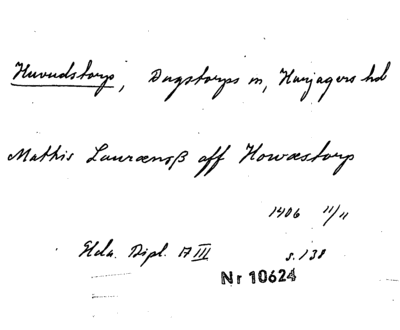 Huvudstorp, Dagstorps sn, Harjagers hd
Mathis Laurensß aff Howæstorp
1406 11/11
Dipl. III s. 138
Nr 10624